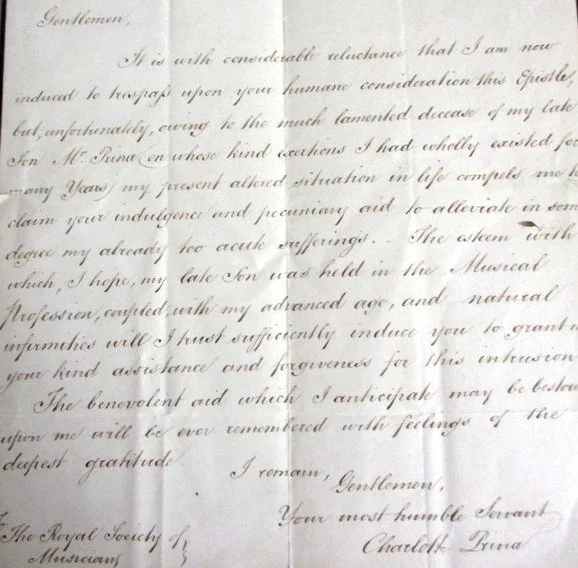 Gentlemen,
It is with considerable reluctance that I am now
induced to trespass upon your humane consideration this Epistle,
but, unfortunately, owing to the much lamented decease of my late
Son Mr. Prina (on whose kind exertions I had wholly existed for
many Years) my present altered situation in life compels me to
claim your indulgence and pecuniary aid to alleviate in some
degree my already too acute sufferings.. The esteem with
which, I hope, my late Son was held in the Musical
Profession, coupled, with my advanced age, and natural
infirmities will I trust sufficiently induce you to grant
your kind assistance and forgiveness for this intrusion
The benevolent aid which I anticipate may be bestow
upon me will be ever remembered with feelings of the
deepest gratitude
I remain,
Gentlemen,
Your most humble Servant
Charlott Prina
To
The Royal Society of
Musicians